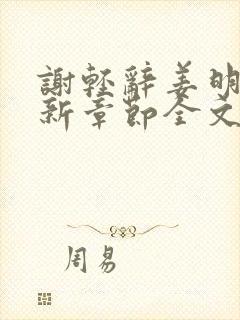 謝輕辭姜明
新章節全文
周易